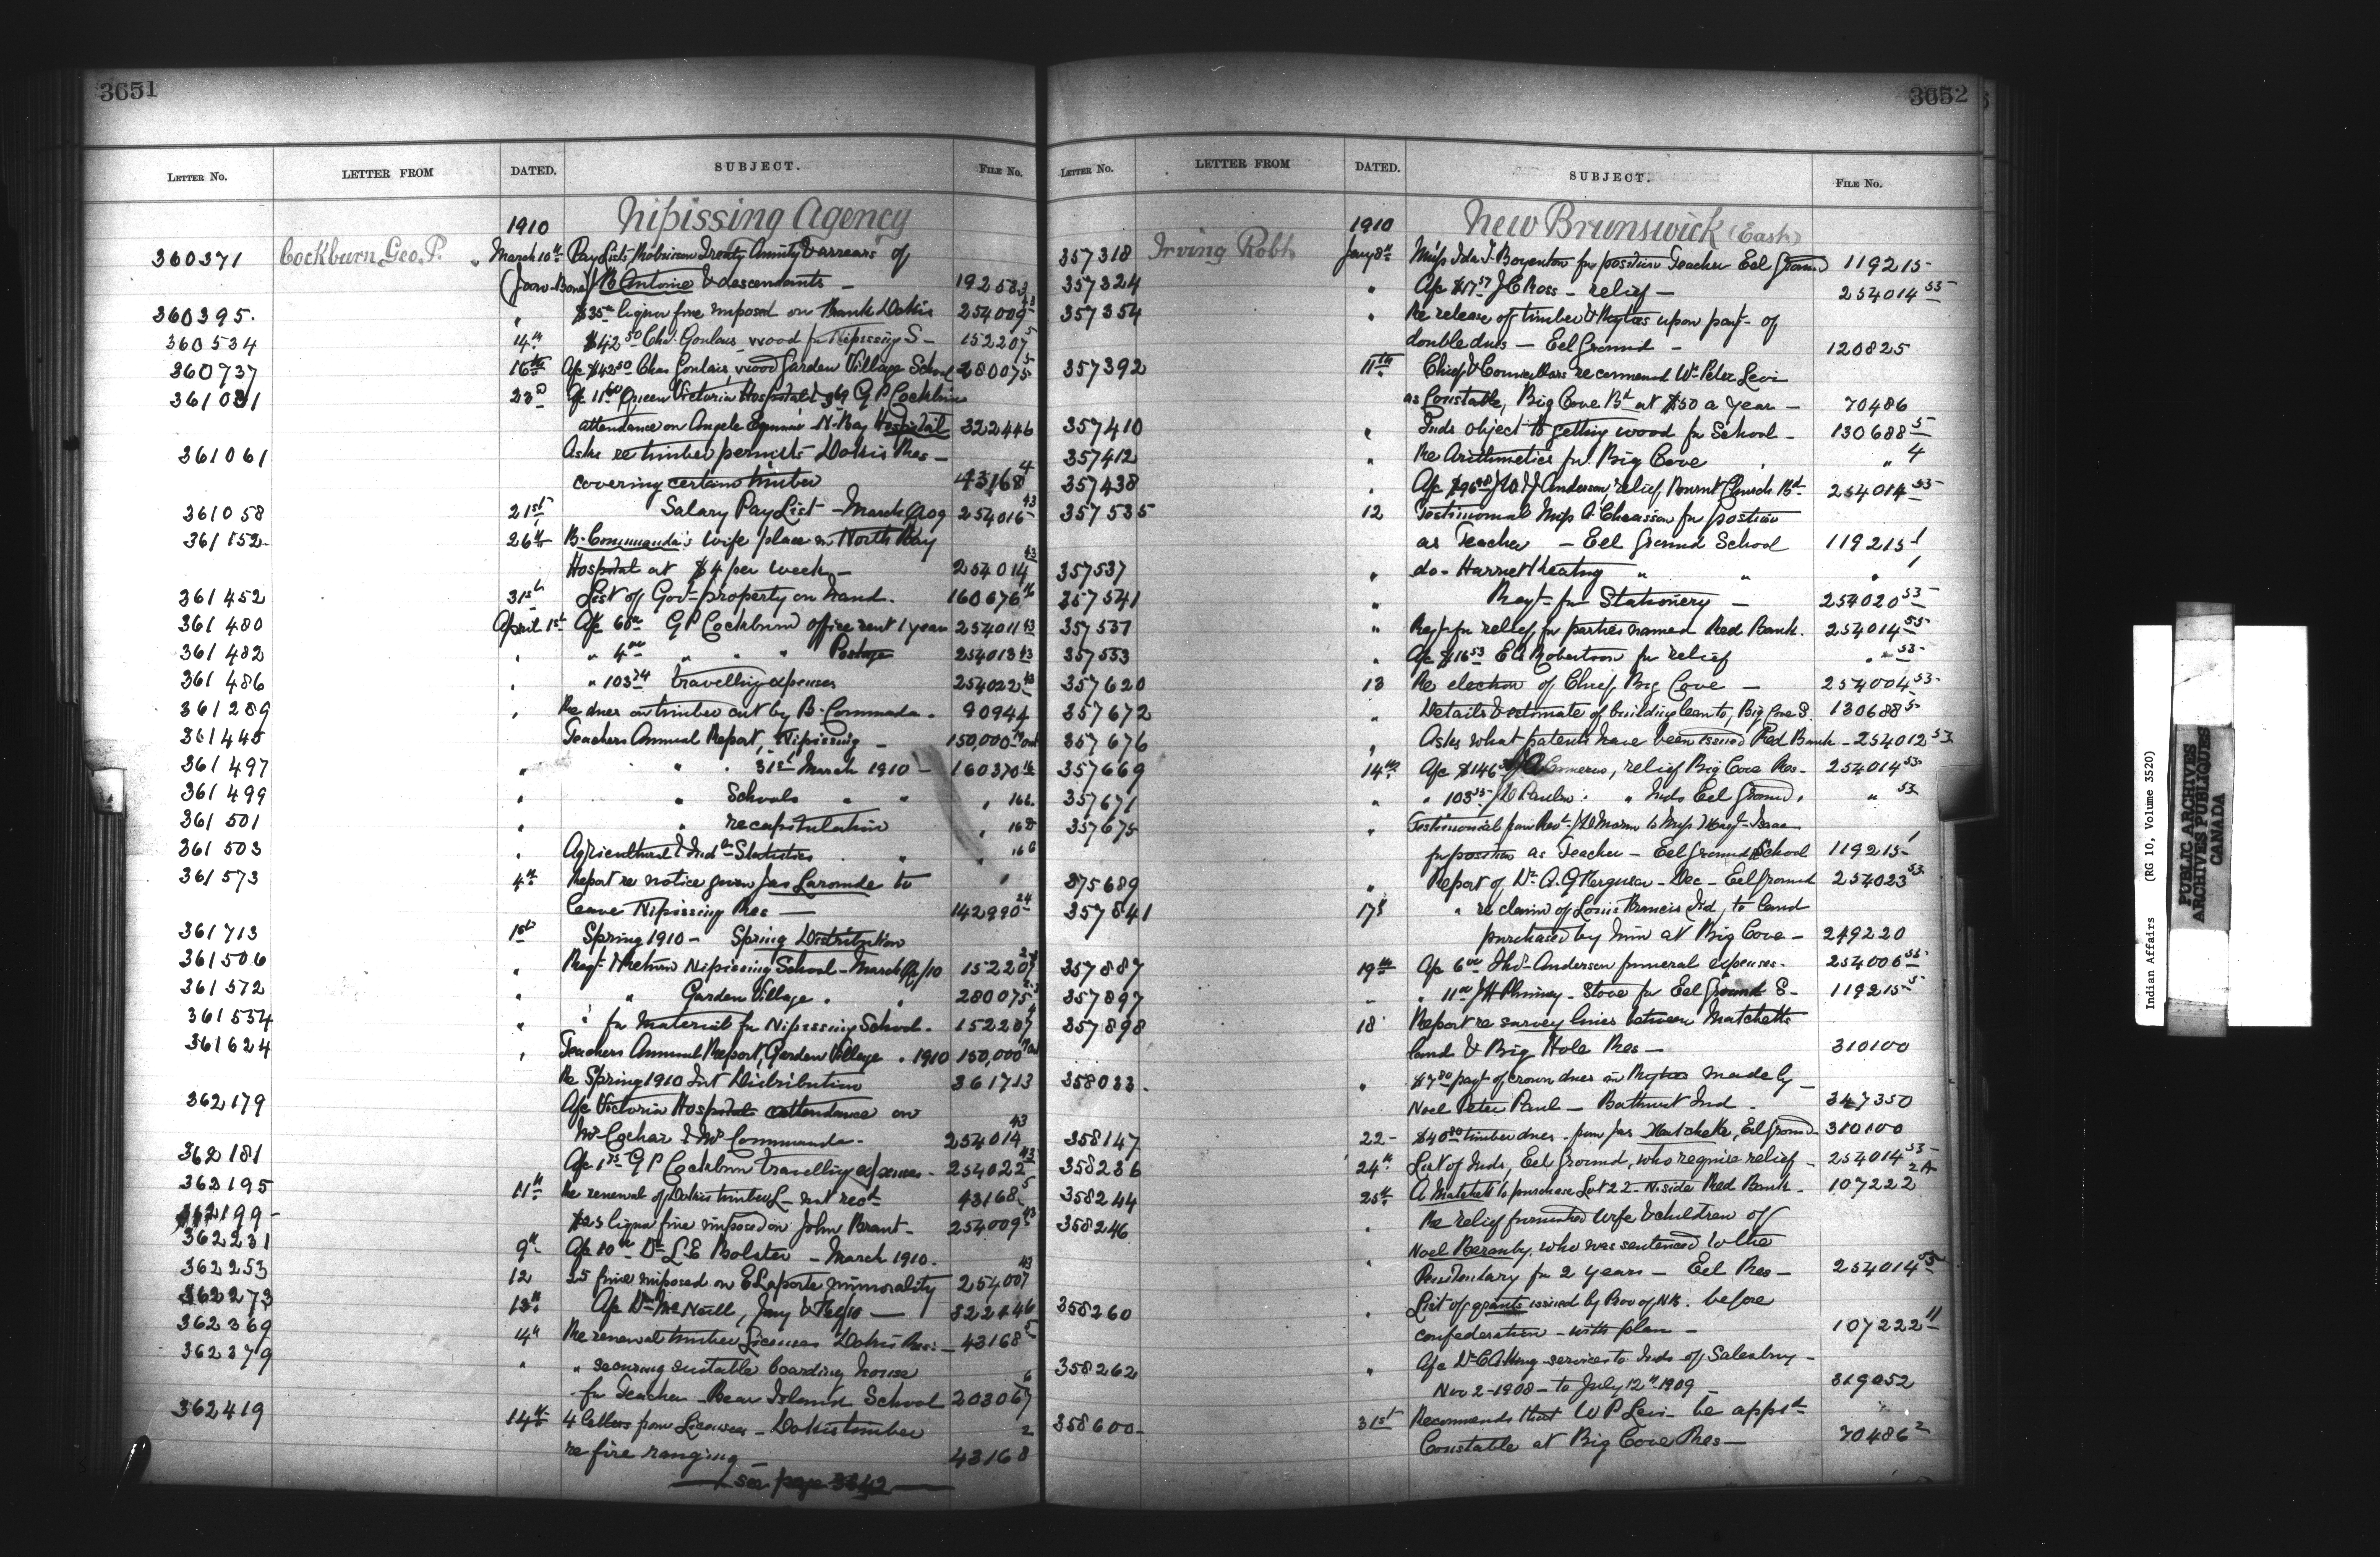 3651
LETTER NO. LETTER FROM DATED. SUBJECT. FILE NO.
1910 Nipissing Agency
360371 Cockburn, Geo. P. March 10th Pay Lists Robinson Treaty Annuity & arrears of
Antoine & descendants — 192583
360395 " $35 liquor fine imposed on Frank Dokis 254009 43
360534 14th $42 50 Chas. Goulais wood for Nipissing S— 152207 5
360737 16th A/c $42 50 Chas Goulais, wood Garden Village School 280075 5
361031 23d Queen Victoria Hospital & G P Cockburn
attendance on Angele N. Bay Hospital 322446
361061 Asks re timber permits Dokis Res —
covering certain timber 43168 4
361058 21st Salary Pay List — March 254016 43
361152 26th B. Commanda's wife place in North Bay
Hospital at $4 per week — 254014 43
361452 31st List of Govt property on hand. 160676 16
361480 April 1st A/c 60 G P Cockburn office rent 1 year 254011 43
361482 " " 4 00 " " " Postage 254013 43
361486 " " 103 74 travelling expenses 254022 43
361289 " Re dues on timber cut by B. Commanda. 90944
361445 Teachers Annual Report, Nipissing — 150,000
361497 " " . 31st March 1910 — 160370 16
361499 " " Schools " " " 166
361501 " " recapitulation " 168
361503 " Agricultural & Indl Statistics . " " 166
361573 4th Report re notice given Jas Laronde to "
leave Nipissing Res — 142990 24
361713 1st Spring 1910 — Spring Distribution
361506 " Reqt & return Nipissing School — March 152207
361572 " " Garden Village . " 280075
361554 " " for material for Nipissing School. 152207 4
361624 " Teachers Annual Report, Garden Village . 1910 150,000
Re Spring 1910 Int Distribution 361713
362179 A/c Victoria Hospital attendance on
Mrs Cochai & Mrs Commanda. 254014 43
362181 A/c G P Cockburn travelling expenses. 254022 43
362195 11th Re renewal of Dokis timber L— not recd 43168 5
362199 — liquor fine imposed on John Brant — 254009 43
362231 9th A/c 10 Dr L. E Bolster — March 1910.
362253 12 25 fine imposed on E Laporte immorality 254007 43
362273 13th A/c Dr McNeill, Jany & Feb/10 — 322446
362369 14th Re renewal timber licenses Dokis Res: — 43168 5
362379 " " securing suitable boarding house
for Teacher — Bear Island School 203067 6
362419 14th 4 letters from Licensees — Dokis timber
re fire ranging — 43168 2
— see page 3642 —
3652
LETTER NO. LETTER FROM DATED. SUBJECT. FILE NO.
1910 New Brunswick (East)
357318 Irving Robt. Jany 8th Miss Ida F. Boyenton for position Teacher Eel Ground 119215
357324 " A/c $17 57 J C Ross — relief — 254014 53
357354 " Re release of timber & upon payt of
double dues — Eel Ground — 120825
357392 11th Chief & Councillors recommend Wm Peter Levi
as Constable, Big Cove Bd at $50 a year — 70486
357410 " Inds object to getting wood for School — 130688 5
357412 " Re Arithmetics for Big Cove " " 4
357438 " A/c Anderson, relief, Burnt Church Bd 254014 53
357535 12 Testimonial Miss A. Chiasson for position
as Teacher — Eel Ground School 119215 1
357537 " do — Harriet Keating " " " 1
357541 " Reqt for Stationery — 254020 53
357537 " Reqt for relief, for parties named Red Bank. 254014 53
357553 " A/c $16 53 Robertson for relief " " 53
357620 13 Re election of Chief, Big Cove — 254004 53
357672 " Details & estimate of building lean to, Big Cove S. 130688 5
357676 " Asks what patents have been issued Red Bank — 254012 53
357669 14th A/c $146 relief Big Cove Res — 254014 53
357671 " " 103 " Inds Eel Ground, " 53
357675 " Testimonial from Revd to Miss Isaac
for position as Teacher — Eel Ground School 119215 1
375689 " Report of Dr A. G Ferguson — Dec — Eel Ground 254023 53
357841 17th " re claim of Louis Francis Ind, to land
purchased by him at Big Cove — 249220
357887 19th A/c 6 00 Thos. Anderson funeral expenses. 254006 53
357897 " " 11 00 J H Phinney — Stove for Eel Ground S — 119215 5
357898 18 Report re survey lines between Matchetts
land & Big Hole Res — 310100
358033. " $7 80 payt of crown dues on made by —
Noel Peter Paul — Bathurst Ind. 347350
358147 22 — $40 80 timber dues — from Jas Matchett, Eel Ground 310100
358236 24th List of Inds, Eel Ground, who require relief — 254014 53
358244 25th A Matchett to purchase Lot 22 — N. side Red Bank — 107222 2A
358246 " Re relief furnished wife & children of
Noel, who was sentenced to the
Penitentiary for 2 years — Eel Res — 254014 53
358260 " List of grants issued by Prov of N.B. before
confederation — with plan — 107222 11
358262 " A/c Dr C A King services to Inds of Salesbury —
Nov 2 — 1908 — to July 12th 1909 — 319052
358600 — 31st Recommends that W P Levi — be apptd
Constable at Big Cove Res — 70486 2
Indian Affairs (RG 10, Volume 3520)
PUBLIC ARCHIVES
ARCHIVES PUBLIQUES
CANADA